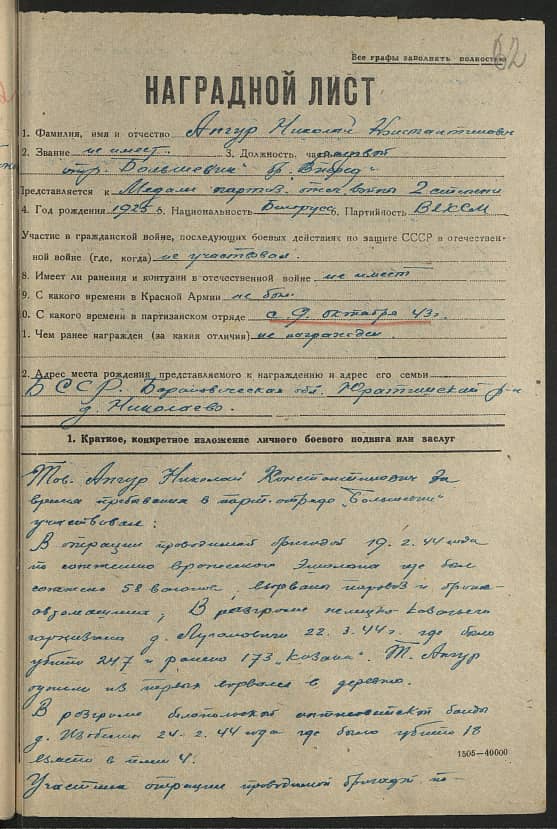 Все графы заполнять полностью
62
НАГРАДНОЙ ЛИСТ
1. Фамилия, имя и отчество Ангур Николай Константинович
2. Звание не имеет. 3. Должность, часть рядовой
отр. Большевик" бр. Вперед"
Представляется к Медали партиз. отеч. войны 2 степени
4. Год рождения 1925 5. Национальность Белорус 6. Партийность ВЛКСМ
Участие в гражданской войне, последующих боевых действиях по защите СССР в отечествен-
ной войне (где, когда) не участвовал.
8. Имеет ли ранения и контузии в отечественной войне не имеет
9. С какого времени в Красной Армии не был.
0. С какого времени в партизанском отряде с 9. октября 43г.
1. Чем ранее награжден (за какия отличия) не награжден.
2. Адрес места рождения представляемого к награждению и адрес его семьи
БССР. Барановическая обл. Юратишский р-н
д. Николаево.
1. Краткое, конкретное изложение личного боевого подвига или заслуг
Тов. Ангур Николай Константинович за
время пребывания в парт. отряде „Большевик"
участвовал:
В операции проводимой бригадой 19. 2. 44 года
по сожжению вражеского эшелона где был
сожжено 58 вагонов, взорваны паровоз и броне-
автомашина, В разгроме немецко-казачьего
гарнизона д. 22. 3. 44г. где было
убито 247 и ранено 173 „казака". Т. Ангур
одним из первых ворвался в деревню.
В разгроме белопольской антисоветской банды
д. 24-2. 44 года где было убито 18
взято в плен 4.
1505—40000
Участник операции проводимой бригадой по-